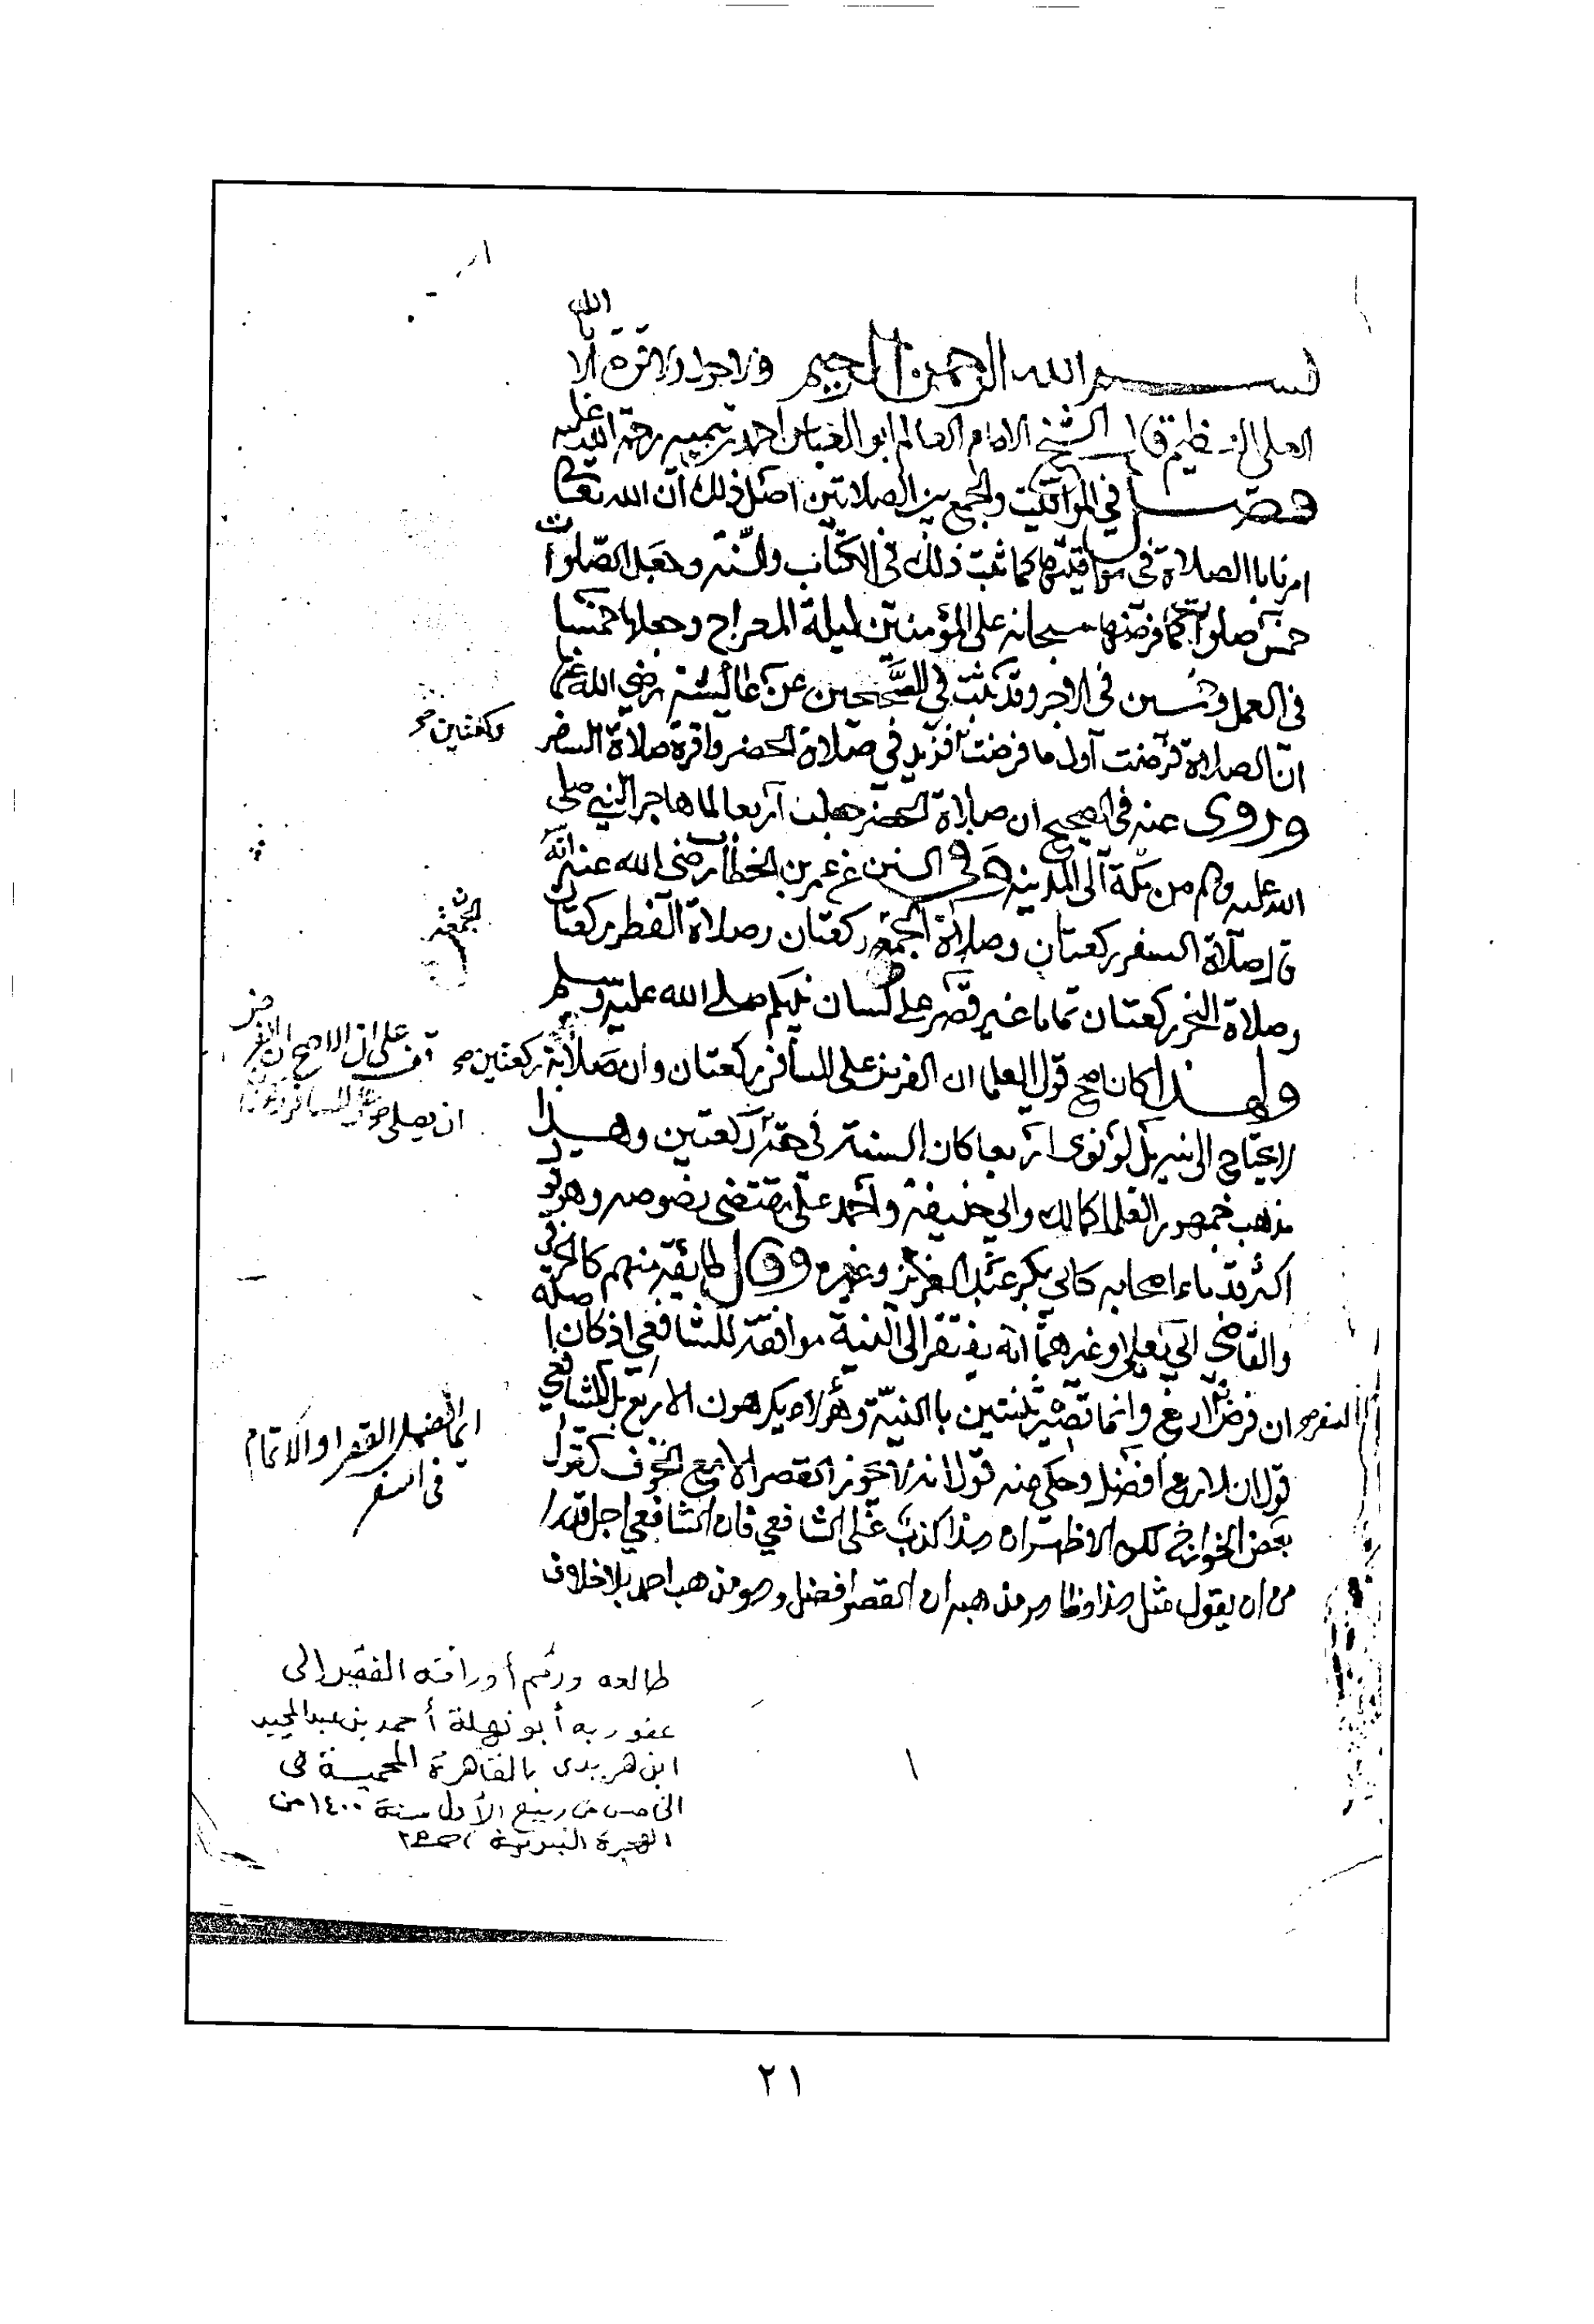 بسم الله الرحمن الرحيم ولا حول ولا قوة الا بالله
العلي العظيم قال الشيخ الامام العالم ابو العباس احمد بن تيميه رحمة الله عليه
فصل في المواقيت والجمع بين الصلاتين اصل ذلك ان الله تعالى
امرنا باالصلاة في مواقيتها كما ثبت ذلك في الكتاب والسنه وجعل الصلوات
خمس صلوات كما فرضها سبحانه على المؤمنين ليلة المعراج وجعلها خمسا
في العمل وخمسين في الاجر وقد ثبت في الصحيحين عن عائيشة رضي الله عنها
ان الصلاة فرضت اول ما فرضت فزيد في صلاة الحضر واقرة صلاة السفر
ركعتين صح
وروى عنه في الصحيح ان صلاة الحضر جعلت اربعا لما هاجر النبي صلى
الله عليه وسلم من مكة الى المدينه وفي السنن عن عمر بن الخطاب رضي الله عنه انه
قال صلاة السفر ركعتان وصلاة الجمعه ركعتان وصلاة الفطر ركعتان
الجمعة
وصلاة النحر ركعتان تماما غير قصر على لسان نبيكم صلى الله عليه وسلم
ولهذا كان اصح قول العلما ان الفرض على المسافر ركعتان وان صلاته ركعتين صح
قف على ان الاصح ان الفرض
على المسافر ركعتان
ان يصلى صح
لا يحتاج الى نيه بل لو نوى اربعا كان السنة في حقه ركعتين وهذا
مذهب جمهور العلما كمالك وابي حنيفة واحمد على مقتضى نصوصه وهو قول
اكثر قدماء اصحابه كابي بكر عبد العزيز وغيره وقال طائفة منهم كالخرقي
والقاضي ابي يعلى وغيرهما انه يفتقر الى النية موافقة للشافعي اذ كان اصله
ان فرضه اربع وانما تصير ثنتين باالنية وهؤلاء يكرهون الاربع بل للشافعي
المسفر صح
ايما افضل القصر او الاتمام
في السفر
قول ان الاربع افضل وحكي عنه قول انه لا يجوز القصر الا مع الخوف كقول
بعض الخوارج لكن الاظهر ان هذا كذب على الشافعي فان الشافعي اجل قدرا
من ان يقول مثل هذا وظاهر مذهبه ان القصر افضل وهو مذهب احمد بلا خلاف
طالعه ورقم أوراقه الفقير إلى
عفو ربه أبو نهلة أحمد بن عبد المجيد
ابن هريدى بالقاهرة المحمية فى
الخامس من ربيع الأول سنة ١٤٠٠ من
الهجرة النبوية
١
٢١